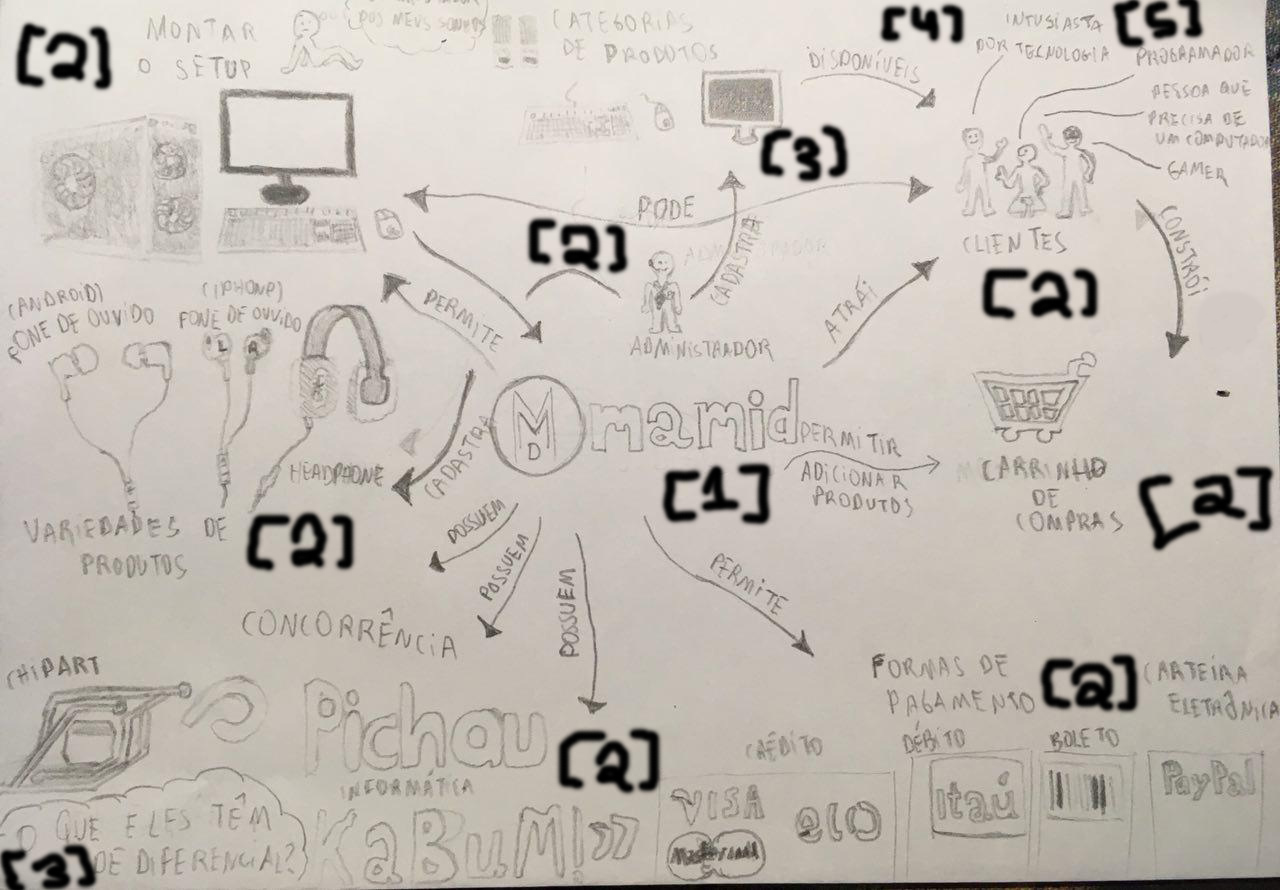 [2]
MONTAR
O SETUP
DOS MEUS SONHOS
CATEGORIAS
DE PRODUTOS
DISPONÍVEIS
[4]
INTUSIASTA
POR TECNOLOGIA
[5]
PROGRAMADOR
PESSOA QUE
PRECISA DE
UM COMPUTADOR
GAMER
[3]
PODE
[2]
ADMINISTRADOR
CADASTRA
ADMINISTRADOR
CLIENTES
[2]
CONSTRÓI
ATRÁI
PERMITE
(ANDROID)
FONE DE OUVIDO
(IPHONE)
FONE DE OUVIDO
L R
HEADPHONE
VARIEDADES DE
PRODUTOS
[2]
CADASTRA
MD
mamid
[1]
PERMITIR
ADICIONAR
PRODUTOS
CARRINHO
DE
COMPRAS
[2]
POSSUEM
POSSUEM
POSSUEM
PERMITE
CONCORRÊNCIA
CHIPART
Pichau
INFORMÁTICA
KaBuM!
[2]
O QUE ELES TÊM
DE DIFERENCIAL?
[3]
FORMAS DE
PAGAMENTO
[2]
CARTEIRA
ELETRÔNICA
CRÉDITO
DÉBITO
BOLETO
VISA
elo
Mastercard
Itaú
PayPal